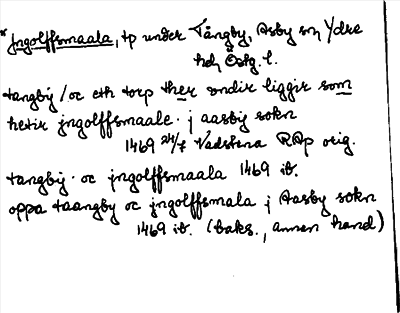 *jngolffsmaala, tp under Tångby, Asby sn, Ydre
hd, Östg. l.
tangby / oc eth torp ther vndir liggir som
hetir jngolffsmaale · j aasby sokn
1469 24/7 Vadstena RAp orig.
tangby · oc jngolffsmaala 1469 ib.
oppa taangby oc jngolffsmala j Aasby sokn
1469 ib. (baks., annen hand)